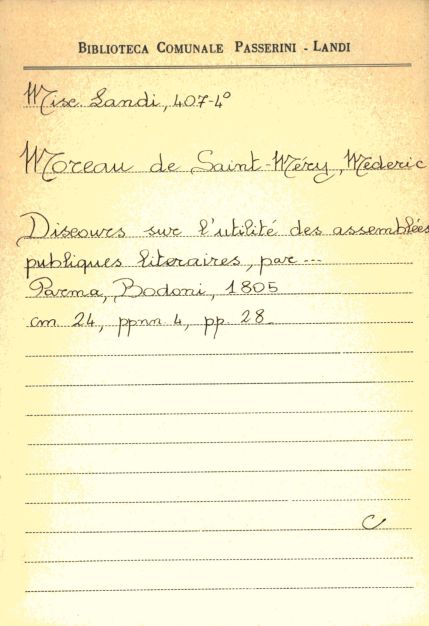 BIBLIOTECA COMUNALE PASSERINI - LANDI
Misc. Landi, 407-4°
Moreau de Saint-Méry, Mederic
Discours sur l'utilité des assemblées
publiques literaires, par ---
Parma, Bodoni, 1805
cm 24, ppnn 4, pp. 28
C